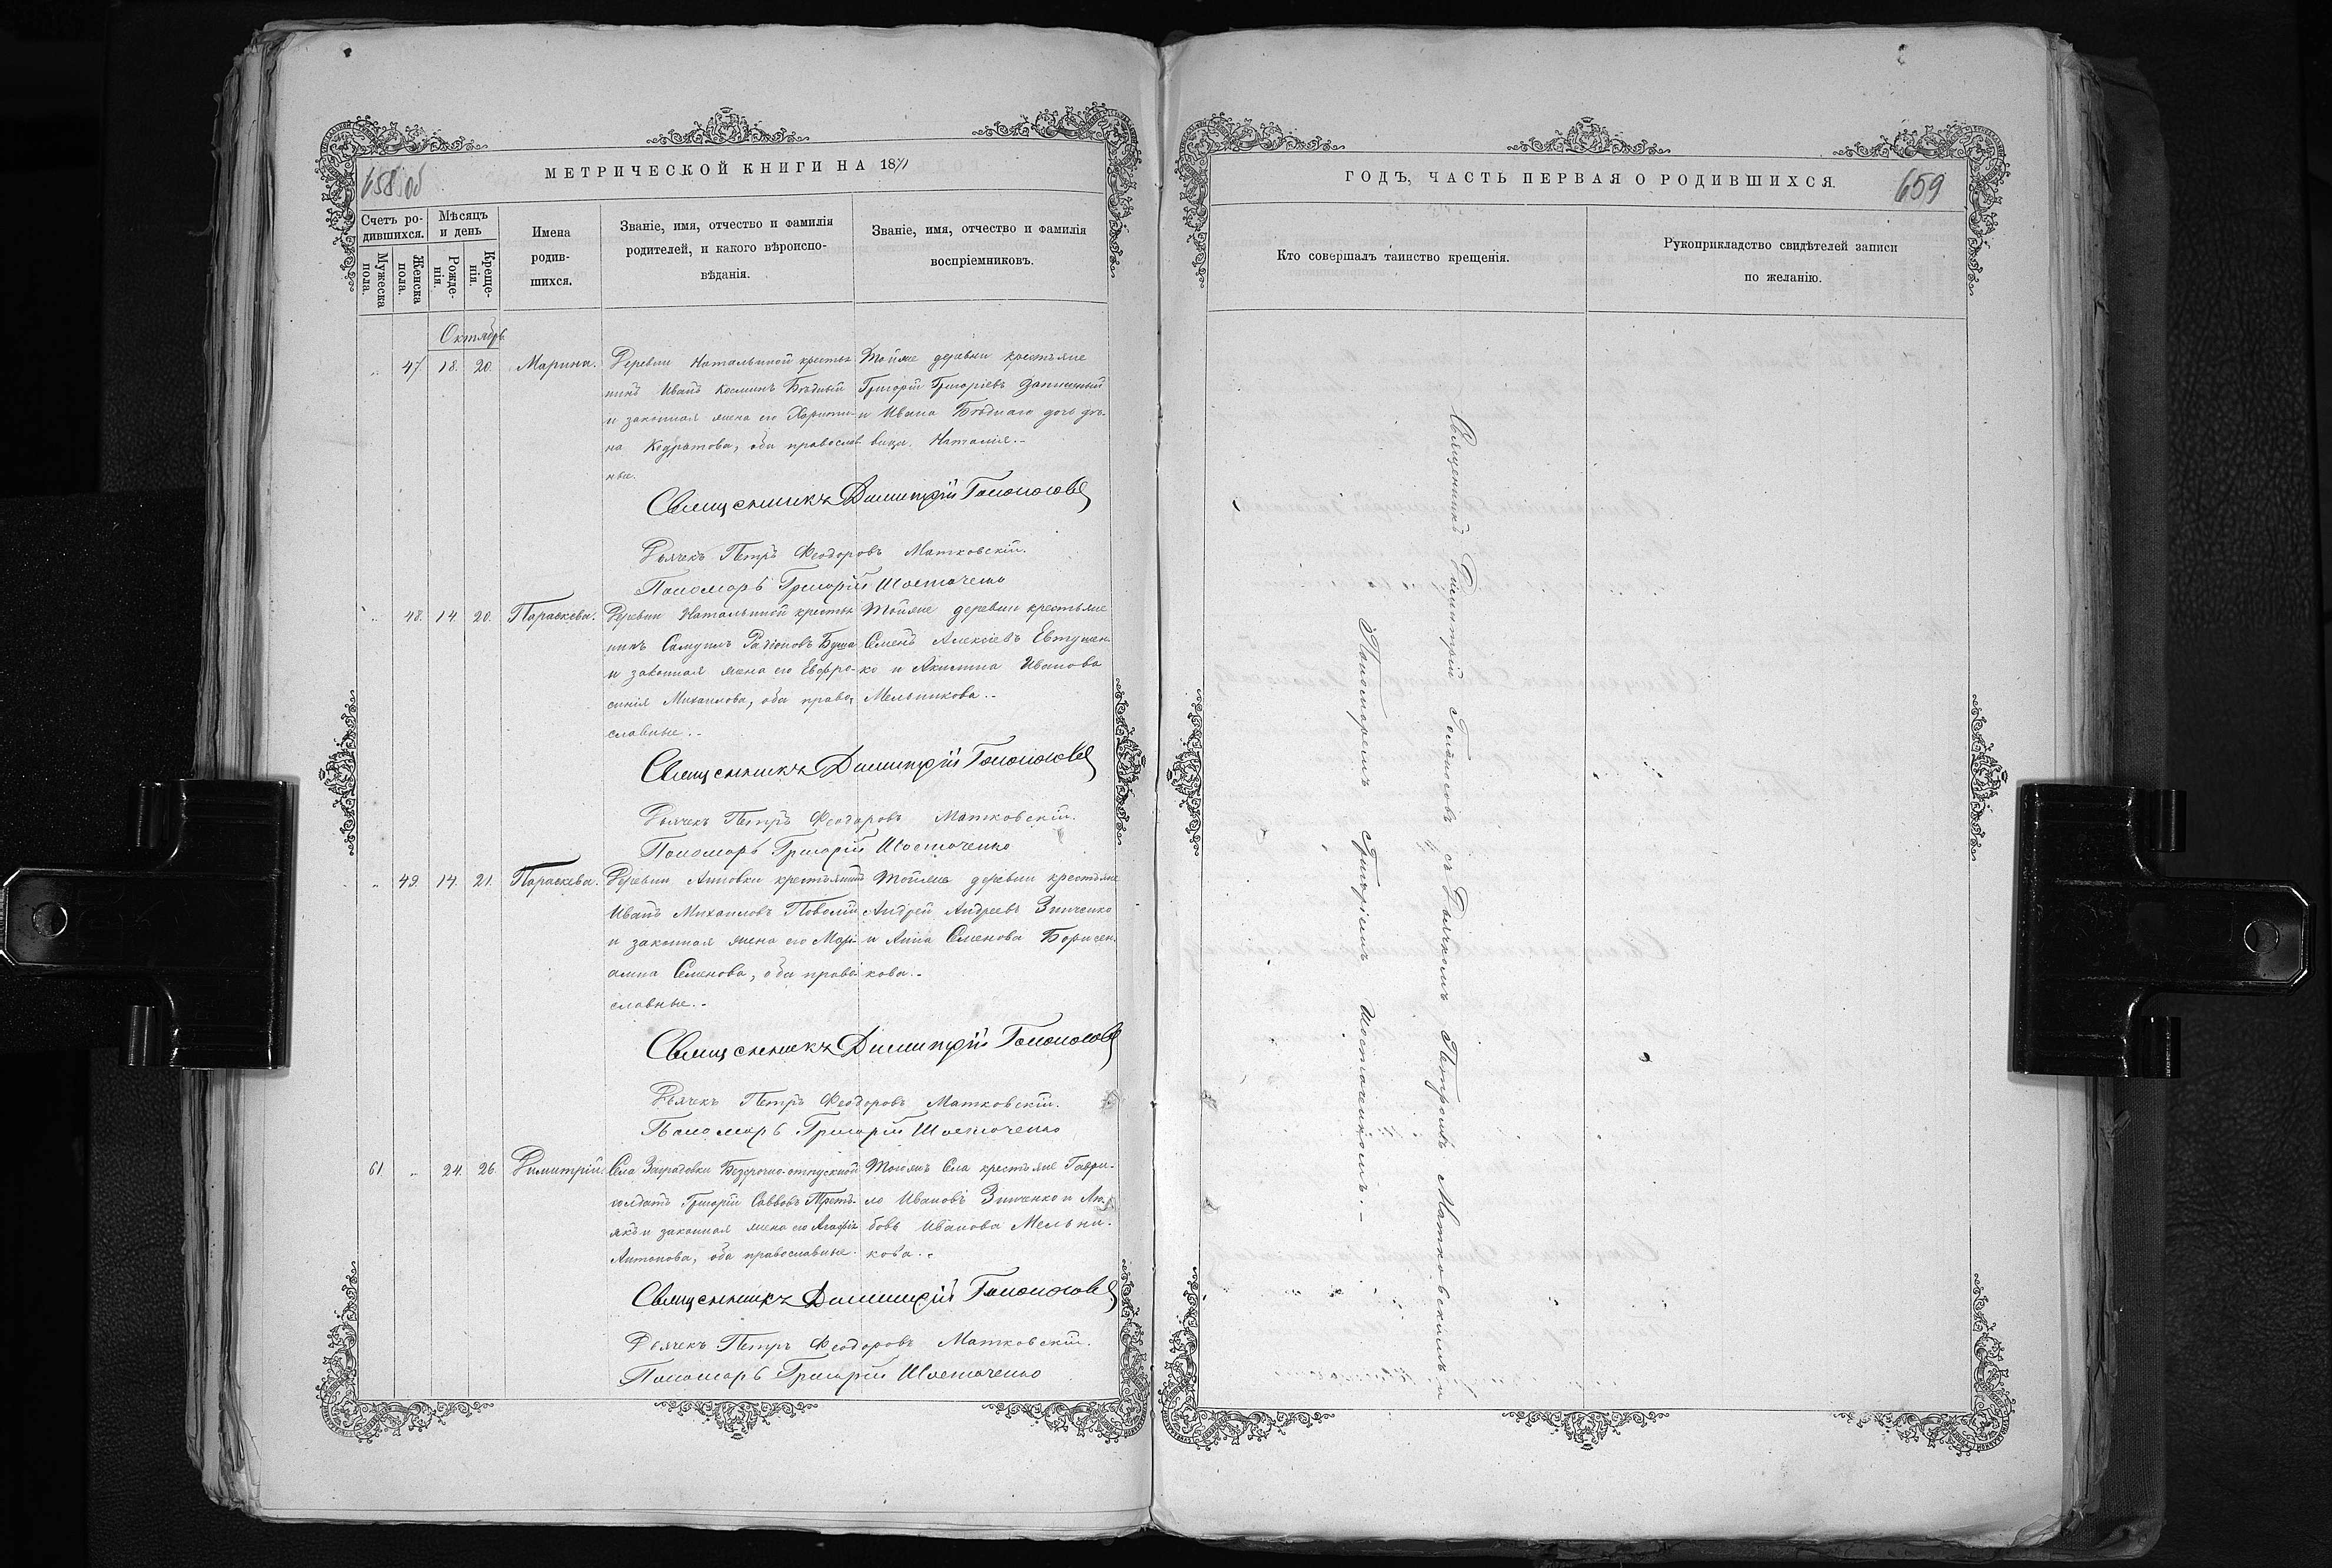 658об
МЕТРИЧЕСКОЙ КНИГИ НА 1871
Счетъ ро-
дившихся.
Мужеска
пола.
Женска
пола.
Мѣсяцъ
и день
Рожде-
нія.
Креще-
нія.
Имена
родив-
шихся.
Званіе, имя, отчество и фамилія
родителей, и какого вѣроиспо-
вѣданія.
Званіе, имя, отчество и фамилія
воспріемниковъ.
Октябрь
„ 47. 18. 20. Марина.
Деревни Натальиной крестья-
нинъ Иванъ Косминъ Бѣдный
и законная жена его Харити-
на Кодратова, оба православ-
ные.
Тойже деревни крестьяне
Григорій Григоріевъ
и Ивана Бѣднаго дочь дѣ-
вица Наталія.-
Священникъ Димитрій Голоногов
Дьячекъ Петръ Феодоровъ Матковскій.
Пономарь Григорій Шостаченко
„ 48. 14. 20. Параскева.
Деревни Натальиной крестья-
нинъ Самуилъ Радіоновъ Буша
и законная жена его Евфро-
синія Михаилова, оба право-
славные.-
Тойже деревни крестьяне
Семенъ Алексіевъ Евтушен-
ко и Акилина Иванова
Мельникова.-
Священникъ Димитрій Голоногов
Дьячекъ Петръ Феодоровъ Матковскій.
Пономарь Григорій Шостаченко
„ 49. 14. 21. Параскева.
Деревни Анновки крестьянинъ
Иванъ Михаиловъ Поволій
и законная жена его Марі-
амна Семенова, оба право-
славные.-
Тойже деревни крестьяне
Андрей Андреевъ Зинченко
и Анна Семенова Борисен-
кова.-
Священникъ Димитрій Голоногов
Дьячекъ Петръ Феодоровъ Матковскій.
Пономарь Григорій Шостаченко
61 „ 24. 26. Димитрій
Села Заградовки Безсрочно-отпускной
солдатъ Григорій Саввовъ Третьякъ
и законная жена его Агафія
Антонова, оба православные.
Тогожъ Села крестьяне Гаври-
ло Ивановъ Зинченко и Лю-
бовь Иванова Мельни-
кова.-
Священникъ Димитрій Голоногов
Дьячекъ Петръ Феодоровъ Матковскій.
Пономарь Григорій Шостаченко
ГОДЪ, ЧАСТЬ ПЕРВАЯ О РОДИВШИХСЯ.
659
Кто совершалъ таинство крещенія.
Рукоприкладство свидѣтелей записи
по желанію.
Священникъ Димитрій Голоноговъ съ Дьячкомъ Петромъ Матковскимъ и
Пономаремъ Григоріемъ Шостаченкомъ.-